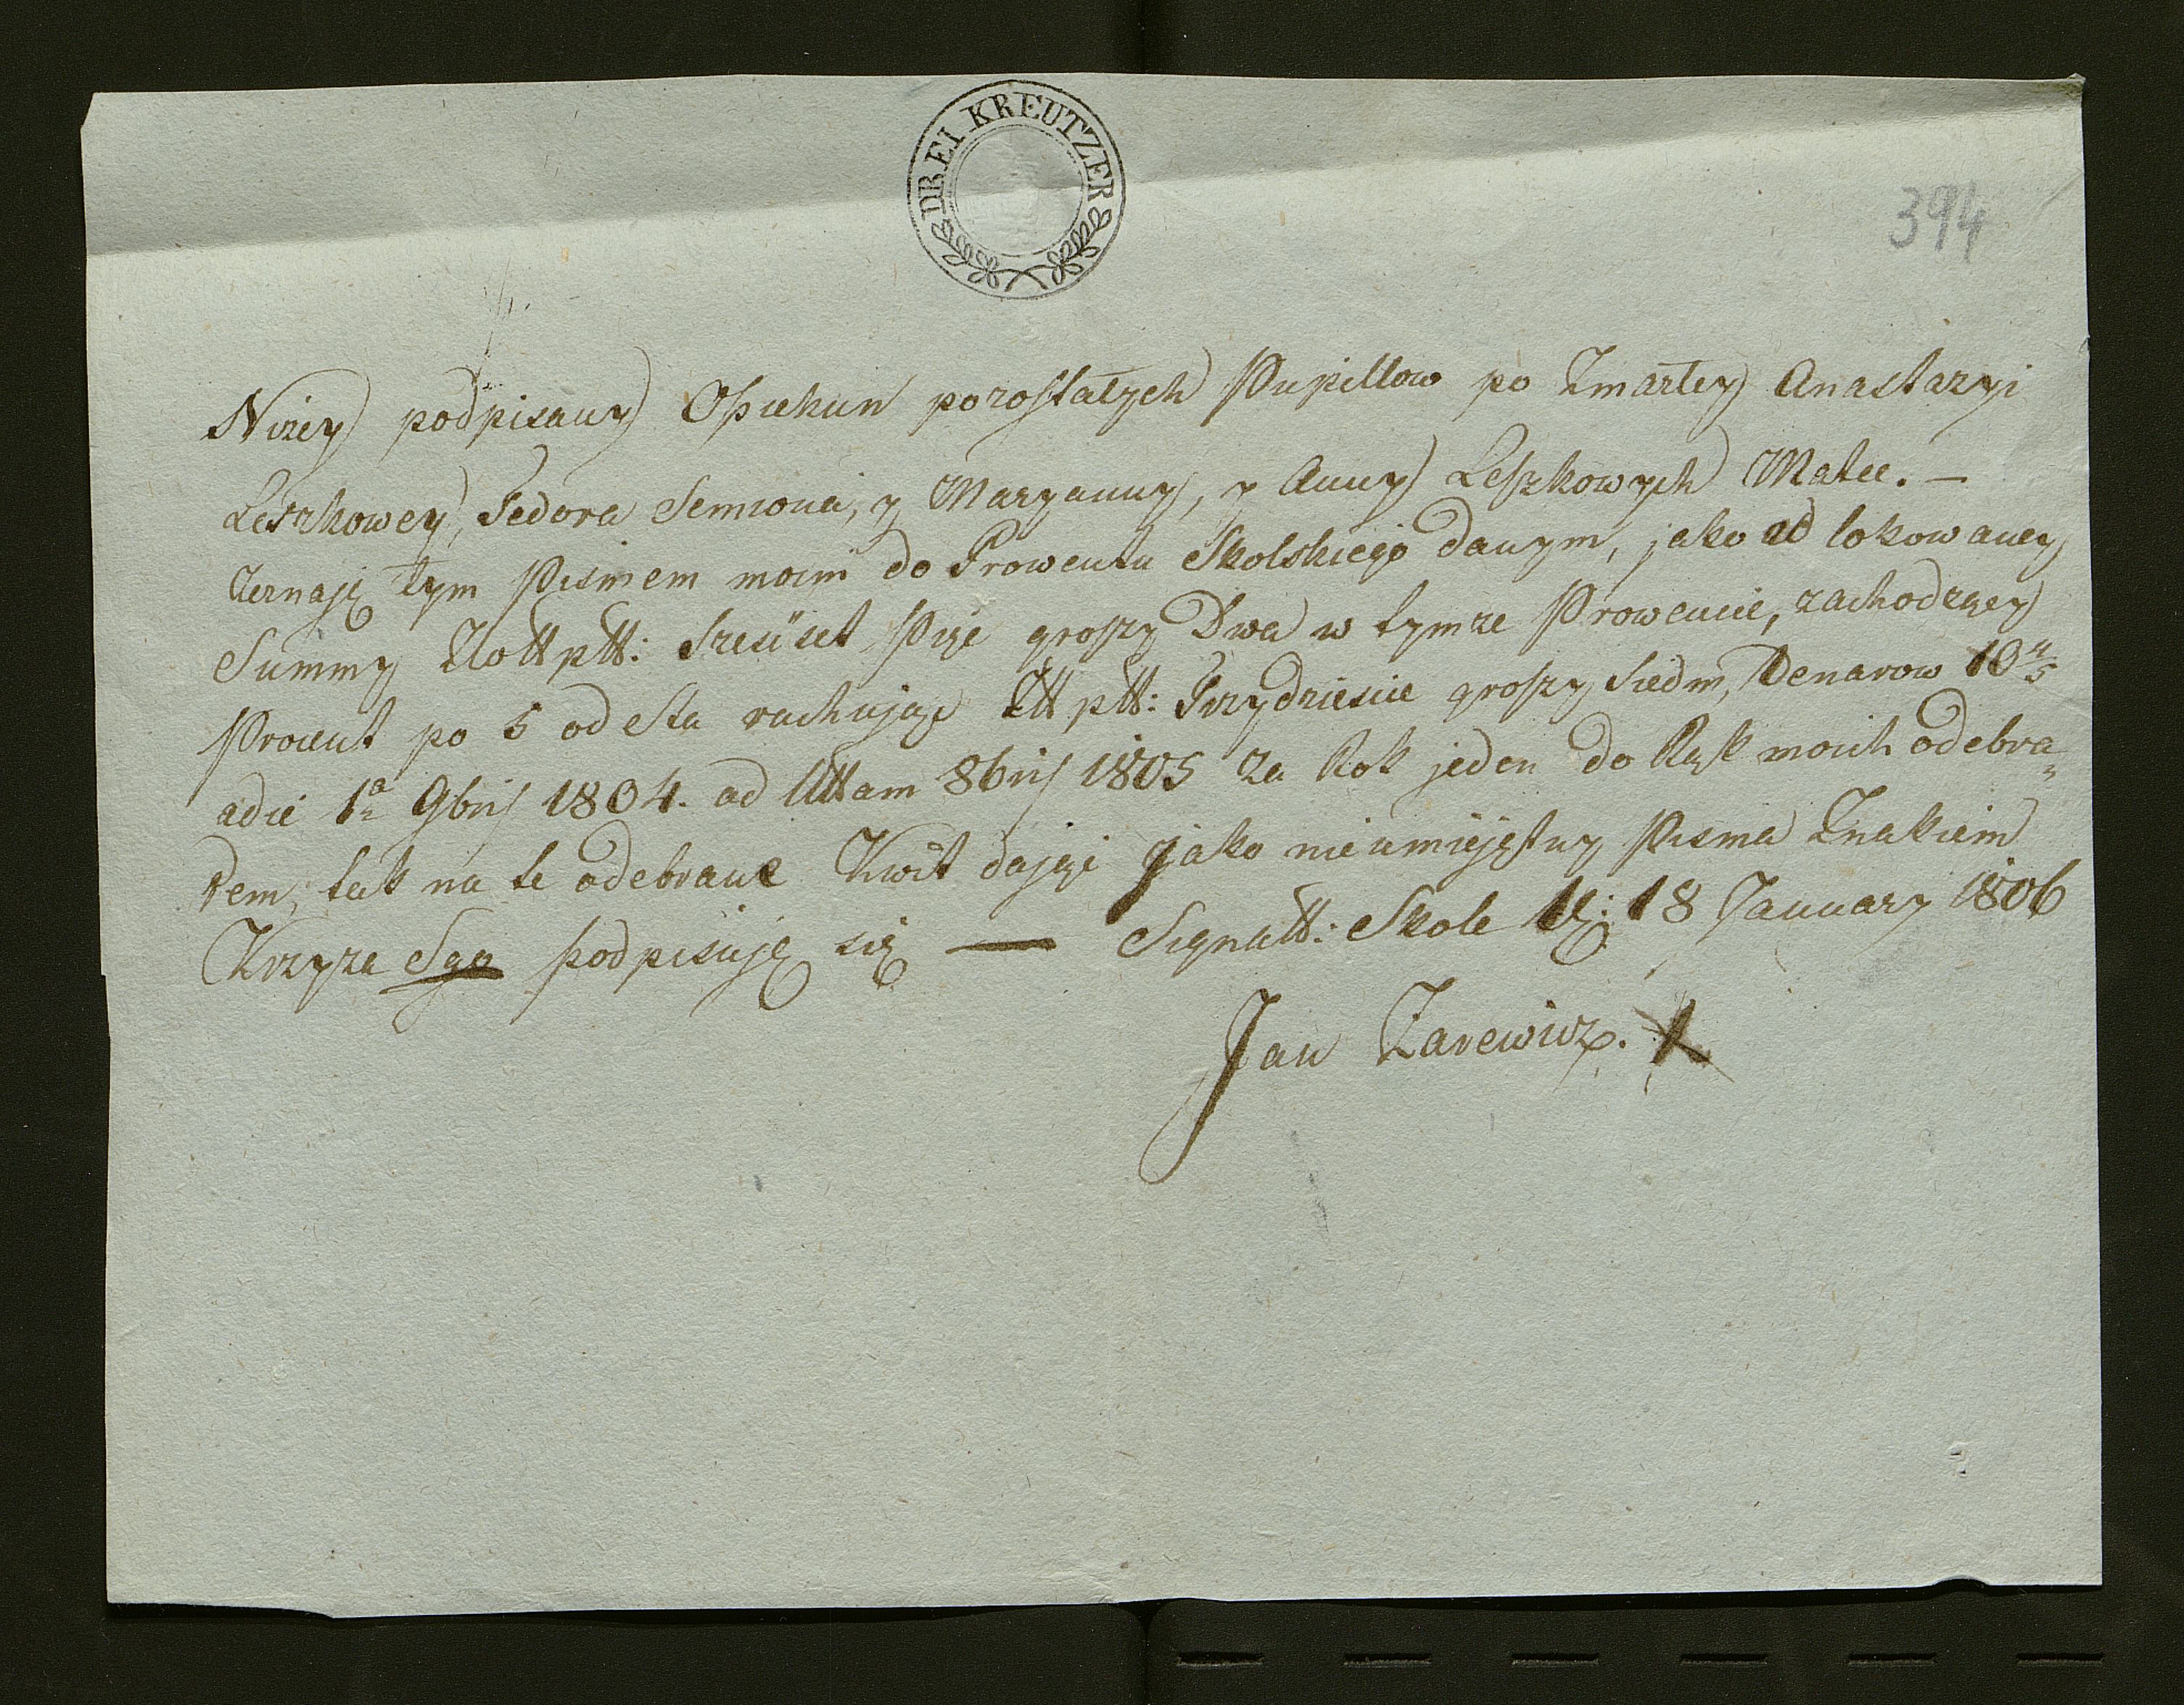 DREI KREUTZER
394
Niżey podpisany Opiekun pozostałych Pupillow po Zmarłey Anastazyi
Leszkowey, Fedora Semiona, y Maryanny, y Anny Leszkowych Matce. —
Zeznaję tym Pismem moim do Prowentu Skolskiego danym, jako od lokowaney
Summy Złott ptt: Szesćset Pięć groszy Dwa w tymze Prowencie, zachodzący
Procent po 5 od Sta rachując Ztt ptt: Trzydziescie groszy Siedm, Denarow 10 4/5
a die 1a 9bris 1804. ad Ultam 8bris 1805 za Rok jeden do Rąk moich odebra„
łem, tak na te odebrane Kwit dając jako nieumiejętny Pisma Znakiem
Krzyza Sgo podpisuję się — Signatt: Skole d: 18 January 1806
Jan Zarewicz. X